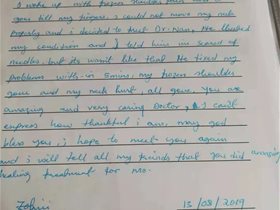 I woke up with frozen shoulder
all my fingers. I could not move my neck
properly and i decided to trust Dr. Nan, He checked
my condition and I told him im scared of
needles but its wasn't like that He fixed my
problems with-in 5 mins. my frozen shoulder
gone and my neck hurt, all gone. You are
amazing and very caring Doctor, & I can't
express how thankful i am. may god
bless you, i hope to meet you again
and i will tell all my friends that you did amazing
healing treatment for me.
13/08/2019